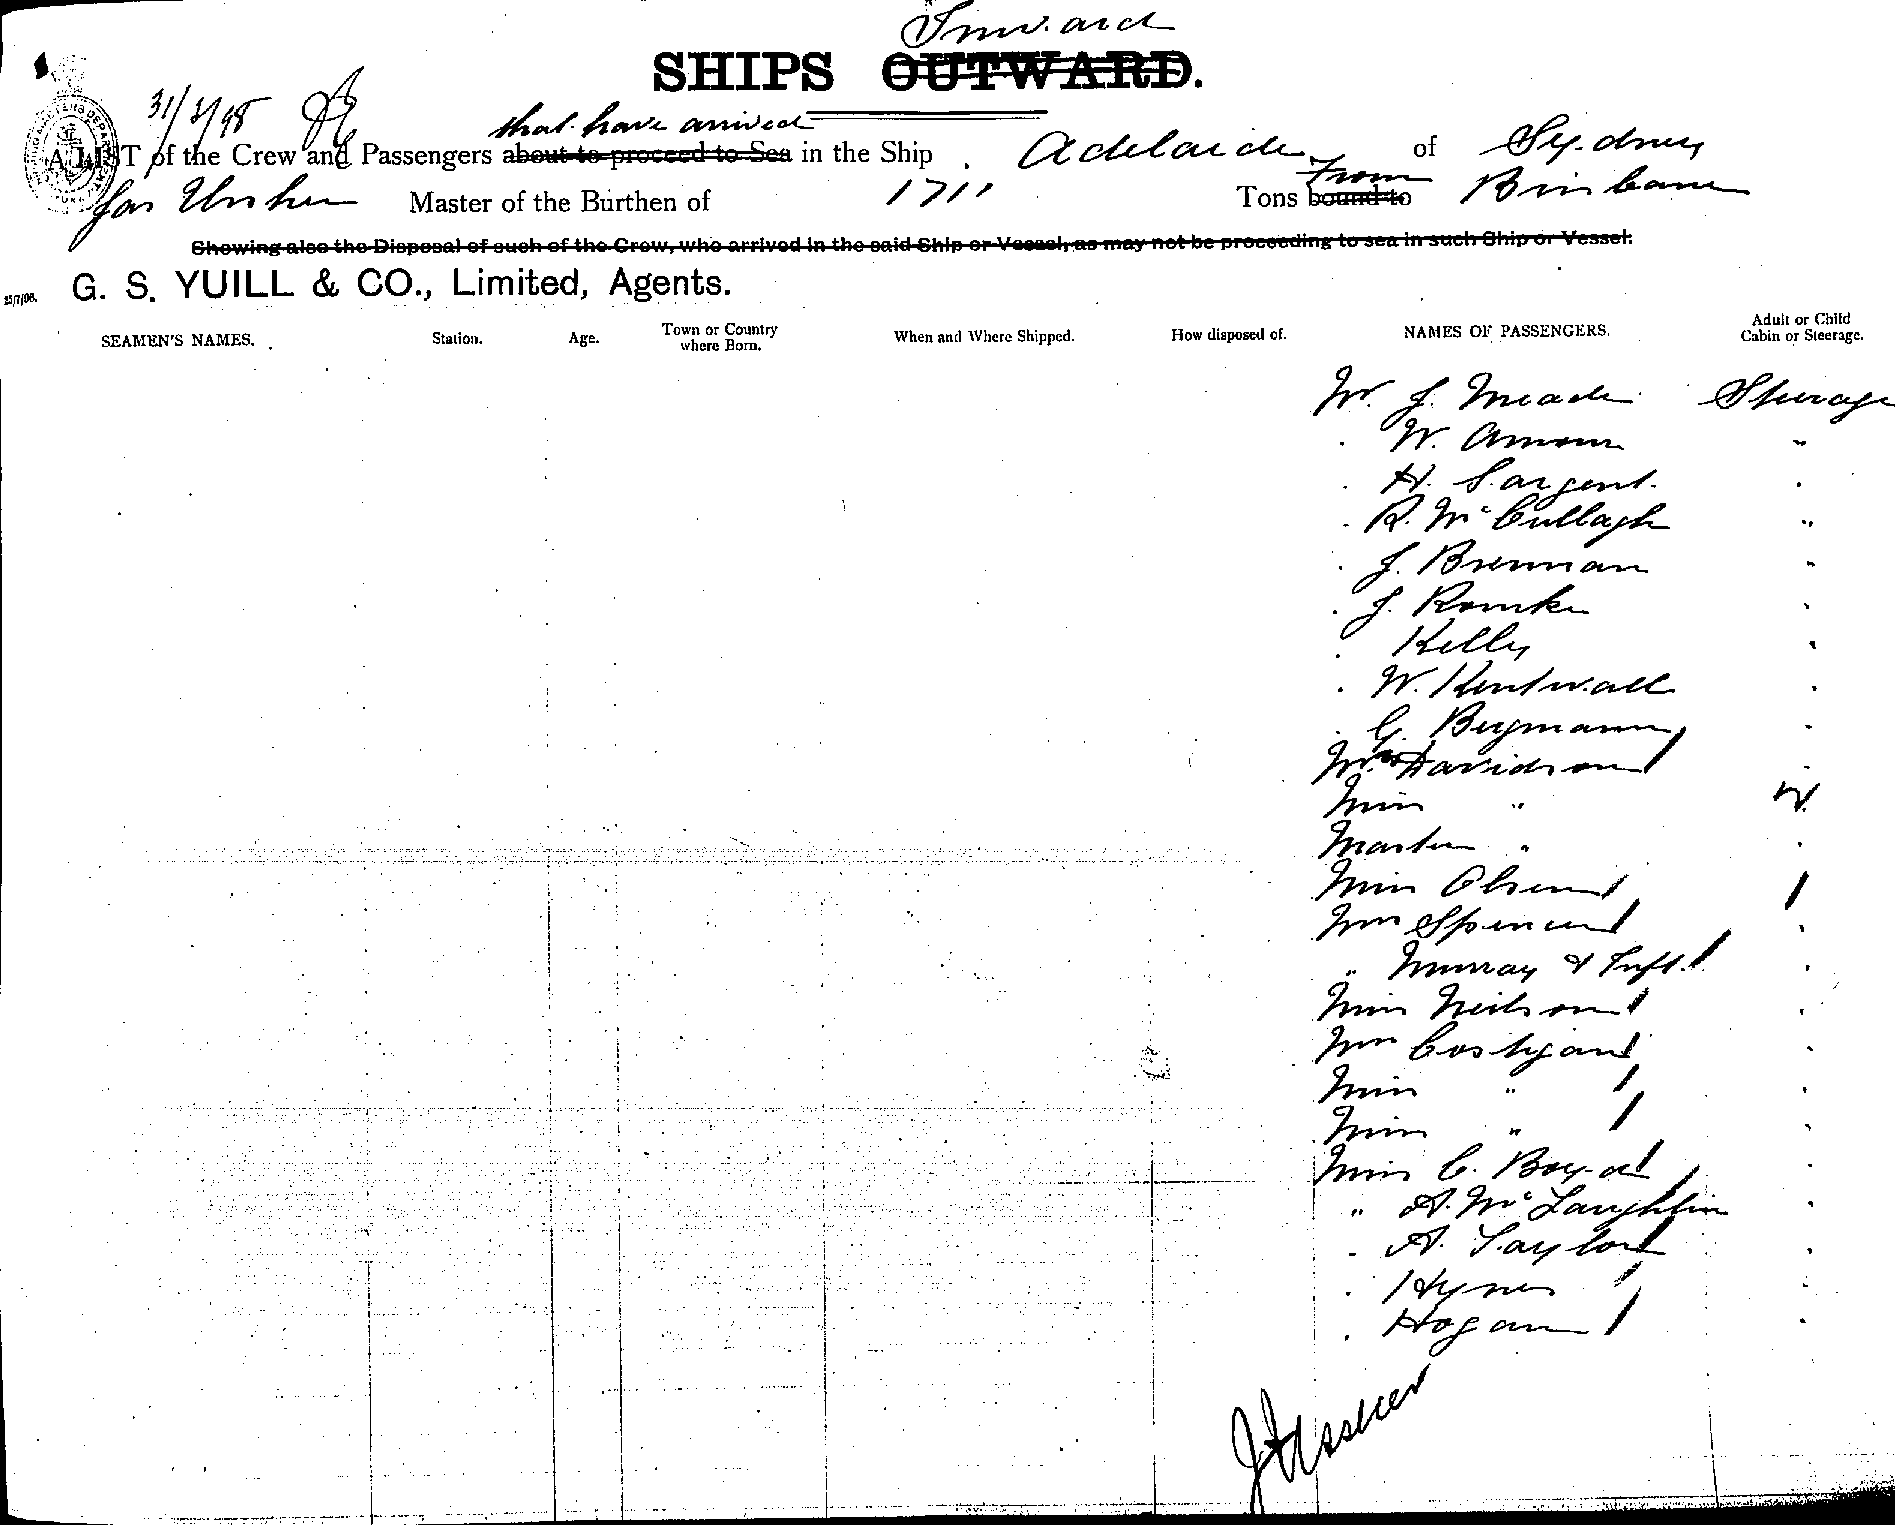 Inward
SHIPS OUTWARD.
31/3/98
that have arrived
A LIST of the Crew and Passengers about to proceed to Sea in the Ship Adelaide of Sydney
from
Jas Ussher Master of the Burthen of 1711 Tons bound to Brisbane
Showing also the Disposal of such of the Crew, who arrived in the said Ship or Vessel, as may not be proceeding to sea in such Ship or Vessel.
G. S. YUILL & CO., Limited, Agents.
SEAMEN'S NAMES. Station. Age. Town or Country where Born. When and Where Shipped. How disposed of. NAMES OF PASSENGERS. Adult or Child Cabin or Steerage.
Mr. J. Meade Steerage
. W. "
. H. Sargent. .
. R. McCullagh "
. J. Brennan "
. J. Rourke .
. Kelly .
. W. Kentwall .
. G. Bergmann .
Mrs Davidson .
Miss "
Master " .
Miss Olsen
Mrs Spencer .
" Murray & Inft. .
Miss Neilson .
Mrs Costigan .
Miss " .
Miss " .
Miss C. Boyd .
" A. McLaughlin .
. A. Taylor .
. Hynes .
. Hogan .
J Ussher